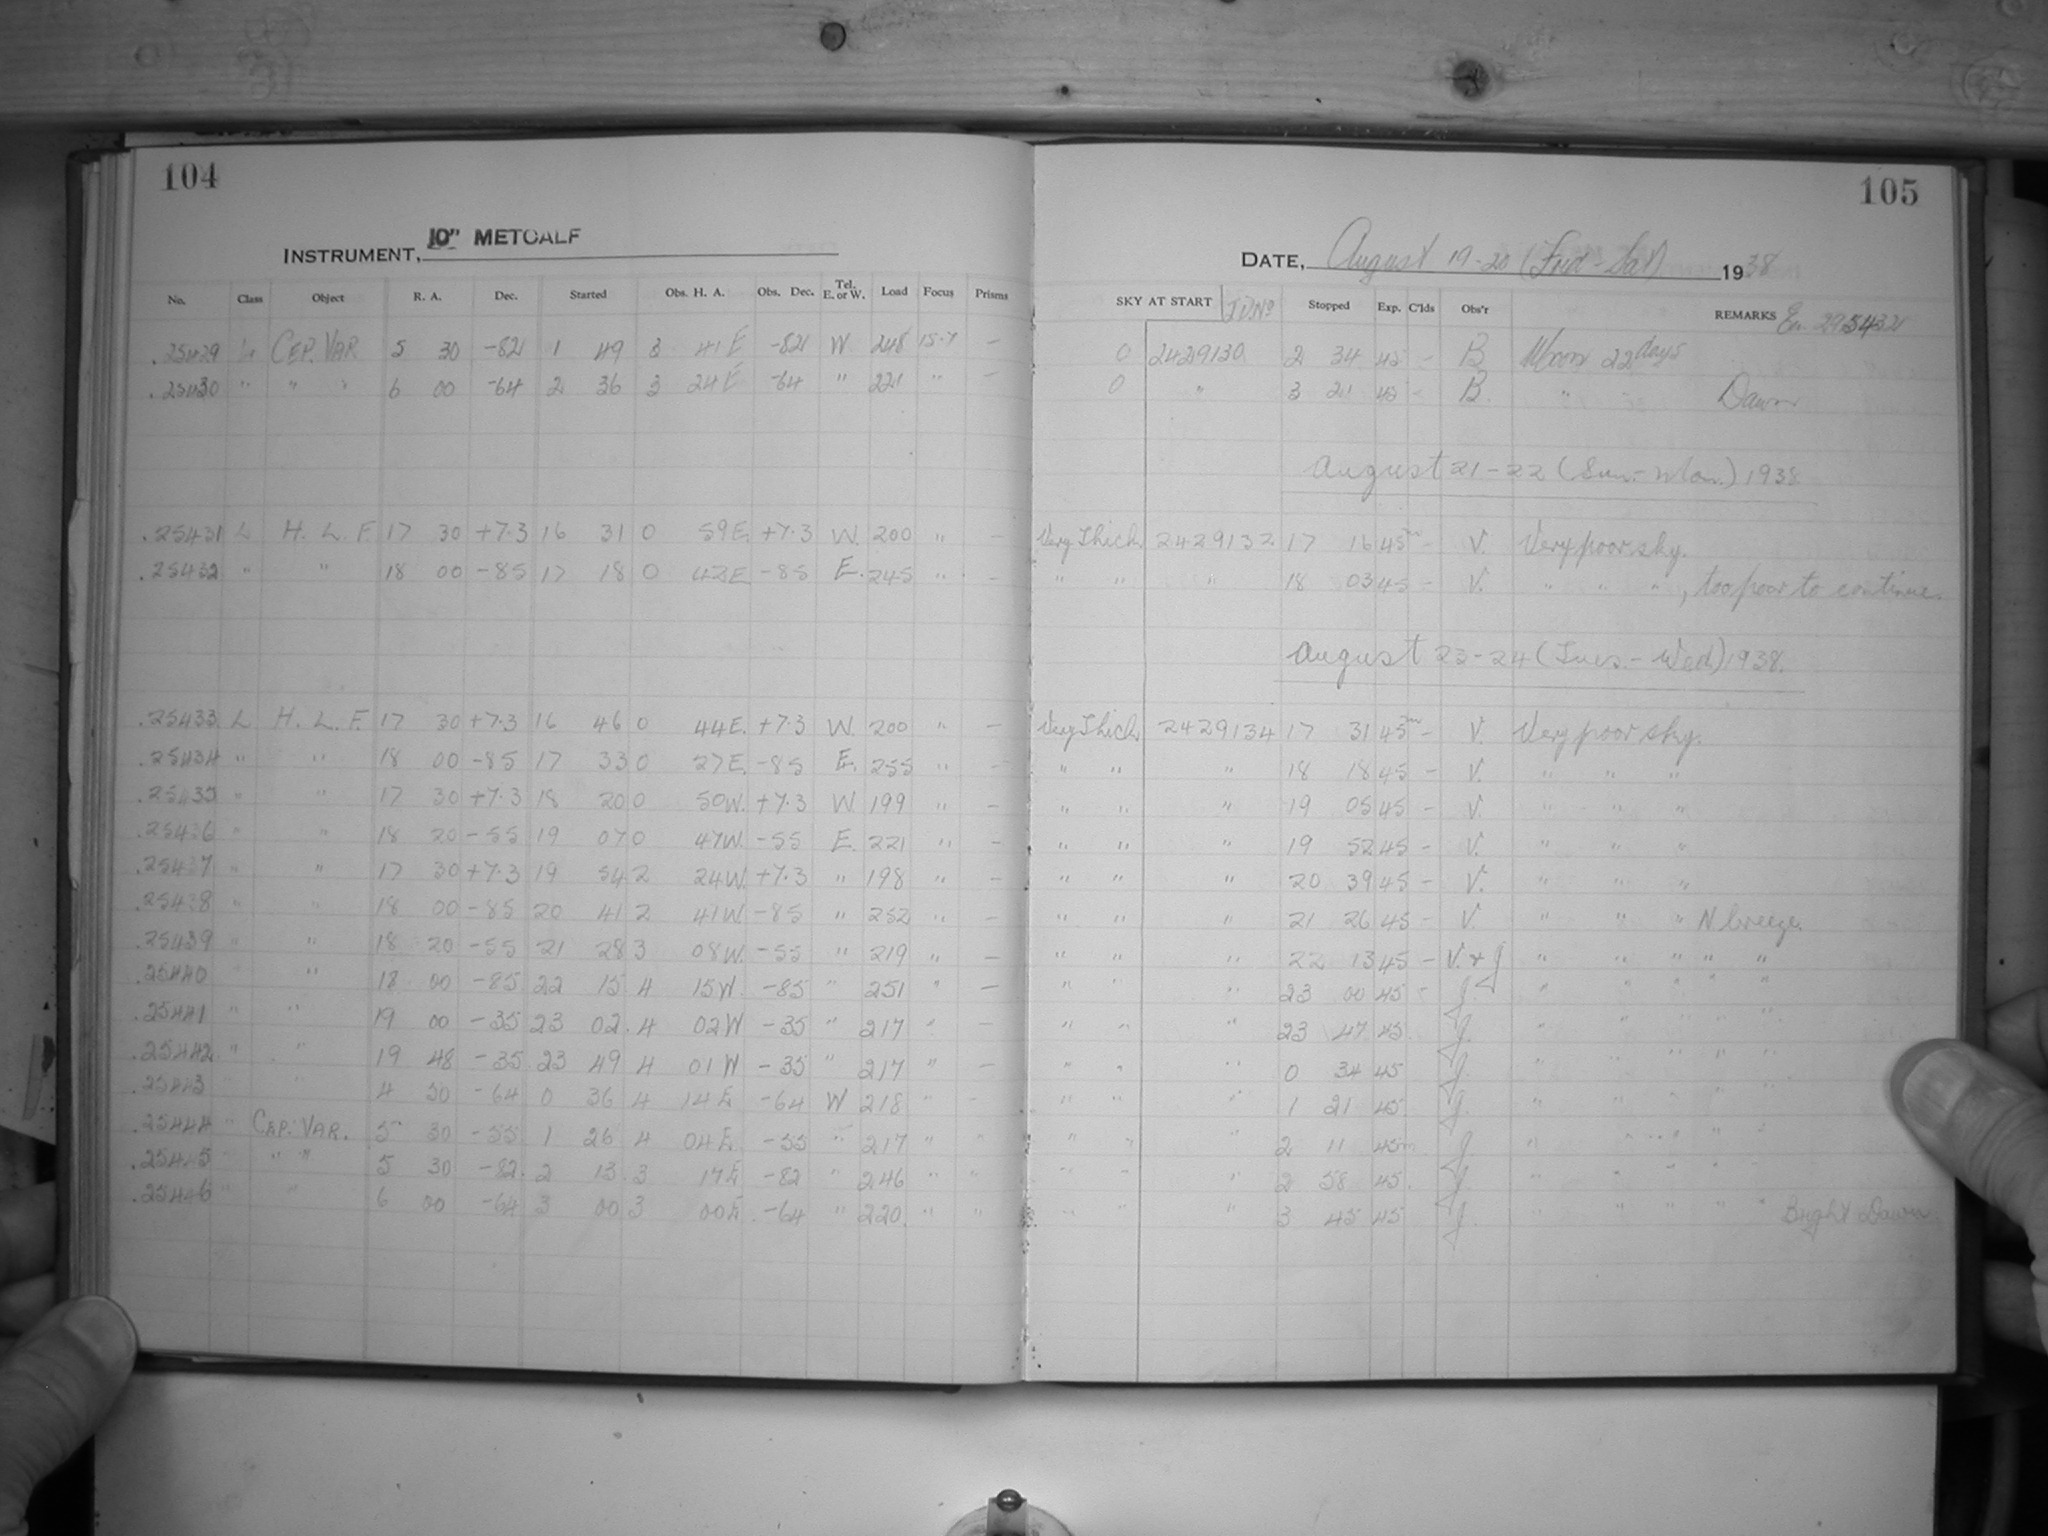 104
INSTRUMENT, 10" METCALF
No. Class Object R. A. Dec. Started Obs. H. A. Obs. Dec. Tel. E. or W. Load Focus Prisms
.25429 CEP. VAR 5 30 -82 1 49 3 41 E -82 W 248 15.7 —
.25430 " " " 6 00 -64 2 36 3 24 E -64 " 221 " —
.25431 L H. L. F. 17 30 +7.3 16 31 0 59 E. +7.3 W. 200 " —
.25432 " " 18 00 -85 17 18 0 42 E -85 E. 245 " —
.25433 L H. L. F. 17 30 +7.3 16 46 0 44 E. +7.3 W. 200 " —
.25434 " " 18 00 -85 17 33 0 27 E. -85 E. 255 " —
.25435 " " 17 30 +7.3 18 20 0 50 W. +7.3 W. 199 " —
.25436 " " 18 20 -55 19 07 0 47 W. -55 E. 221 " —
.25437 " " 17 30 +7.3 19 54 2 24 W. +7.3 " 198 " —
.25438 " " 18 00 -85 20 41 2 41 W. -85 " 252 " —
.25439 " " 18 20 -55 21 28 3 08 W. -55 " 219 " —
.25440 " " 18 00 -85 22 15 4 15 W. -85 " 251 " —
.25441 " " 19 00 -35 23 02 4 02 W -35 " 217 " —
.25442 " " 19 48 -35 23 49 4 01 W -35 " 217 " —
.25443 " " 4 30 -64 0 36 4 14 E -64 W 218 " "
.25444 " CEP. VAR. 5 30 -55 1 26 4 04 E. -55 " 217 " "
.25445 " " " 5 30 -82 2 13 3 17 E -82 " 246 " "
.25446 " " 6 00 -64 3 00 3 00 E -64 " 220 " "
105
DATE, August 19-20 (Frid - Sat) 1938
SKY AT START J.D.No Stopped Exp. C'lds Obs'r REMARKS
0 2429130 2 34 45 - B Moon 22 days
0 " 3 21 45 - B. " " Dawn
August 21-22 (Sun.-Mon.) 1938
Very Thick 2429132 17 16 45m - V. Very poor sky.
" " " 18 03 45 - V. " " ", too poor to continue.
August 23-24 (Tues.-Wed) 1938.
Very Thick 2429134 17 31 45m - V. Very poor sky.
" " " 18 18 45 - V. " " "
" " " 19 05 45 - V. " " "
" " " 19 52 45 - V. " " "
" " " 20 39 45 - V. " " "
" " " 21 26 45 - V. " " " N breeze.
" " " 22 13 45 - V. + J " " " " "
" " " 23 00 45 - J. " " " " "
" " " 23 47 45 J. " " " " "
" " " 0 34 45 J. " " " " "
" " " 1 21 45 J. " " " " "
" " " 2 11 45m J. " " " " "
" " " 2 58 45. J. " " " " "
" " " 3 45 45 J. " " " " " Bright Dawn.